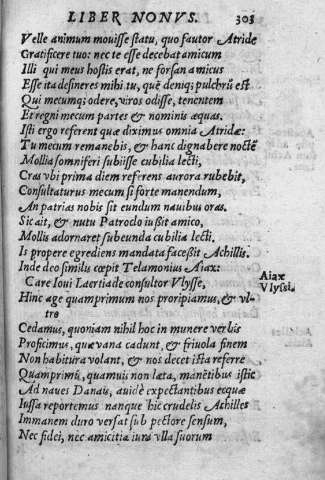 LIBER NONVS. 303
Velle animum mouisse statu, quo fautor Atride
Gratificere tuo: nec te esse decebat amicum
Illi qui meus hostis erat, ne forsan amicus
Esse ita desineres mihi tu, quē deniq; pulchrū est
Qui mecumq; odere, viros odisse, tenentem
Et regni mecum partes & nominis æquas.
Isti ergo referent quæ diximus omnia Atridæ:
Tu mecum remanebis, & hanc dignabere noctē
Mollia somniferi subiisse cubilia lecti,
Cras vbi prima diem referens aurora rubebit,
Consultaturus mecum si forte manendum,
An patrias nobis sit eundum nauibus oras.
Sic ait, & nutu Patroclo iußit amico,
Mollis adornaret subeunda cubilia lecti.
Is propere egrediens mandata faceßit Achillis.
Inde deo similis cœpit Telamonius Aiax:
Aiax
Vlyssi.
Care Ioui Laertiade consultor Vlysse,
Hinc age quamprimum nos proripiamus, & vl-
tro
Cedamus, quoniam nihil hoc in munere verbis
Proficimus, quæ vana cadunt, & friuola finem
Non habitura volant, & nos decet ista referre
Quamprimū, quamuis non læta, manētibus istic
Ad naues Danaū, auidè expectantibus ecquæ
Iussa reportemus nanque hic crudelis Achilles
Immanem duro versat sub pectore sensum,
Nec fidei, nec amicitiæ iura vlla suorum